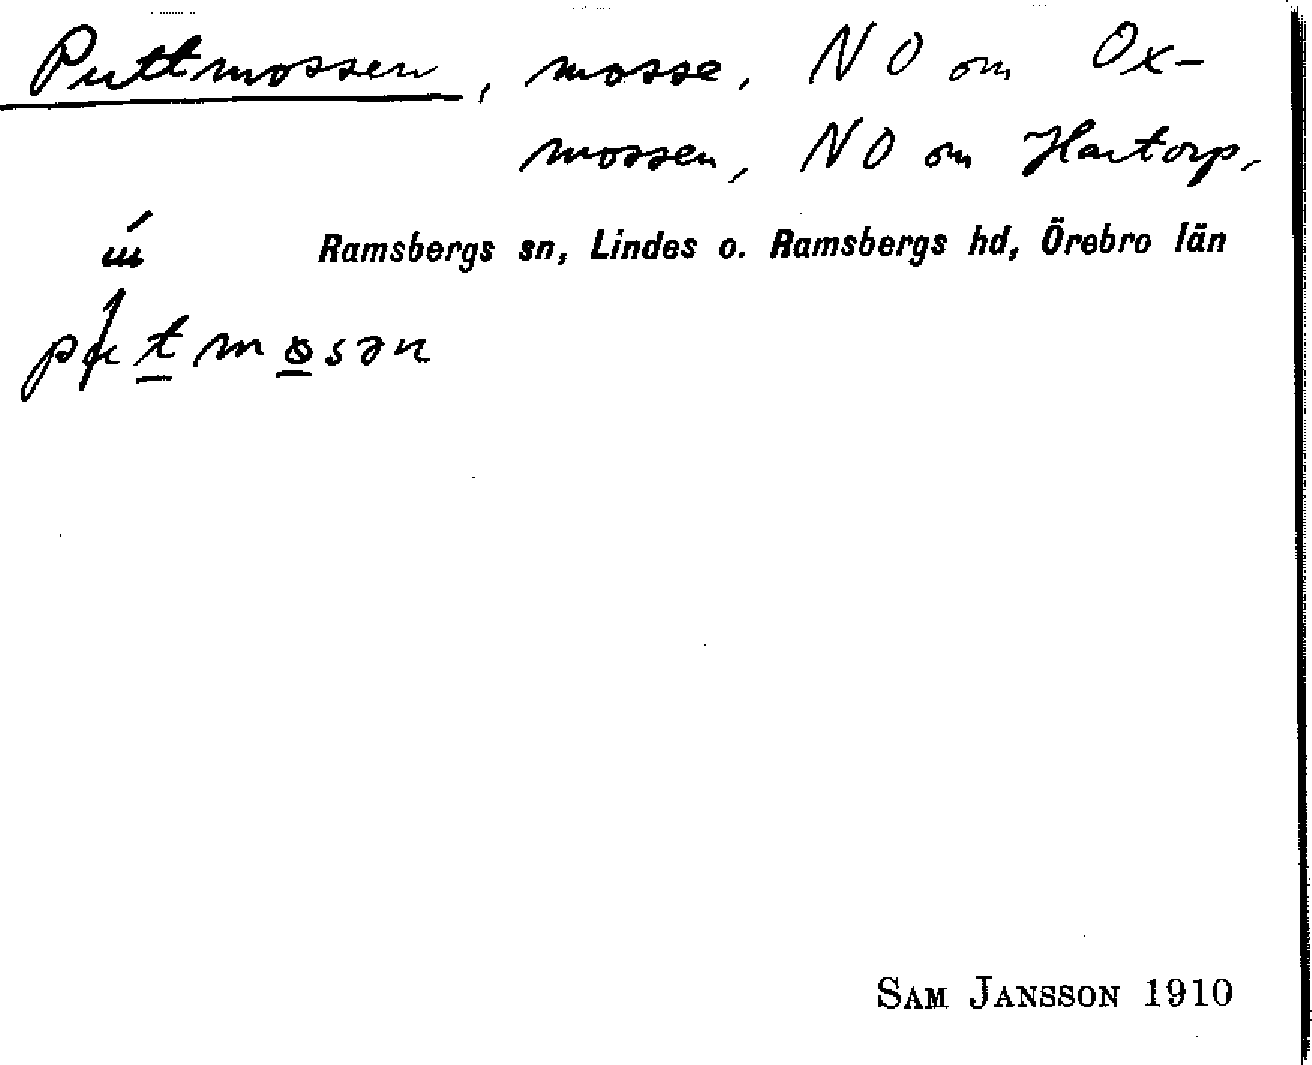 Puttmossen, mosse, NO om Ox-
mossen, NO om Hartorp,
Ramsbergs sn, Lindes o. Ramsbergs hd, Örebro län
SAM JANSSON 1910